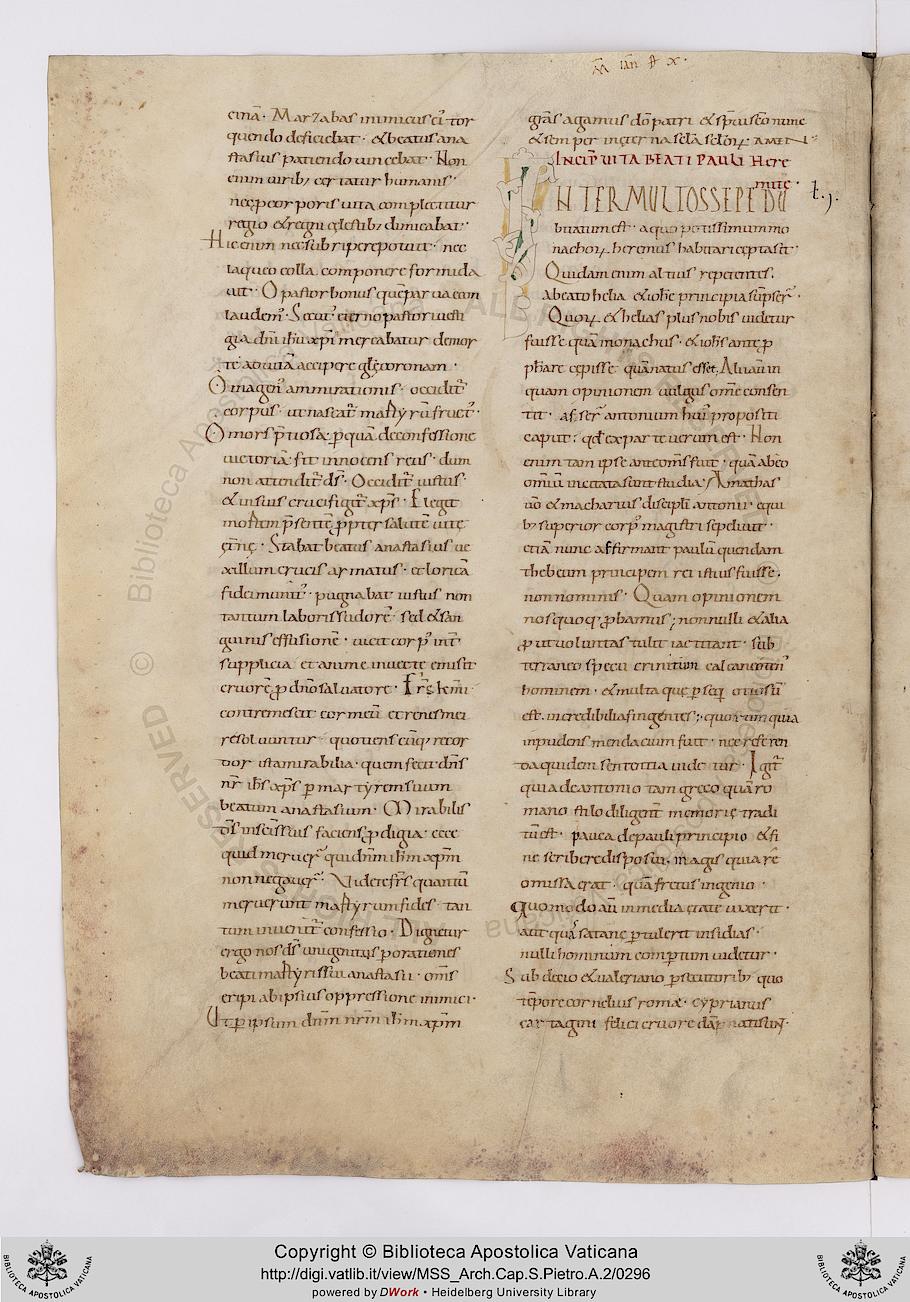 M̄ ian ſt x·
cinā· Marzabas inimicus ei tor
quendo deficiebat· & beatus ana
stasius patiendo vincebat· Non
enim uirib; certatur humanis·
necp corporis uita complectitur
regio & regni celestib; dimicabat·
Hic enim nec subriperepotuit· nec
laqueo colla componere formida
uit· O pastor bonus
laudem·
te aduitā accipere glē coronam·
O magen' ammirationis· occidit'
corpus· ut nascat' martyrū fruct'·
O mors p̄tiosa· p quā deconfessione
uictoria fit innocens reus· dum
non attendit' ds̄· Occidit' iustus·
& iniuis crucifigit' xp̄s· Elegit
mortem p̄sentē ppter salutē uite
et̄nę· Stabat beatus anastasius ue
xillum crucis armatus· et lorica
fidei munit'· pugnabat iustus non
tantum laboris sudorē· sed & san
guinis effusionē· uicit corp' int'
supplicia et anime inuicte emisit
cruorē p dn̄o saluatore· Frs̄ km̄i·
contremescit cor meū et renes mei
resoluuntur quotiens cūq; recor
dor ista mirabilia· quem fecit dn̄s
nr̄ ih̄s xp̄s p martyrem suum
beatum anastasium· Mirabilis
ds̄ in sc̄is suis faciens pdigia· ecce
quid meruer' qui dn̄m ih̄m xp̄m
non negauer'· Videte frs̄ quantū
meruerunt martyrum fides· tan
tum inuenit' confessio· Dignetur
ergo nos ds̄ unigenitus p orationes
beati martyris sui anastasii· om̄s
eripi ab ipsius oppressione inimici·
Ut p ipsum dn̄m nr̄m ih̄m xp̄m
grās agamus do patri & sp̄ui sc̄o nunc
& semper in eterna scl̄a scl̄oꝝ AMEN
INCIP̄ UITA BEATI PAULI Here
mite·
INTER MULTOS SEPE DU
t. j.
bitatum est· a quo potissimum mo
nachoꝝ heremus habitari cepta sit·
Quidam enim altius repetentes·
A beato helia & ioh̄e principia sūpser'·
Quoꝝ & helias plus nobis uidetur
fuisse quā monachus· & ioh̄s ante p
ph̄are cepisse quā natus esset· Alii aū in
quam opinionem uulgus om̄e consen
tit· asser' antonium hui' propositi
caput· qd̄ ex parte uerum est· Non
enim tam ipse ante om̄s fuit· quā ab eo
omiū incitata sunt studia· Amathas
uō & macharius discipli antonii· e qui
b; superior corp' magistri sepeliuit·
etiā nunc affirmant paulū quendam
thebeum principem rei istius fuisse·
non nominis· Quam opinionem
nos quoq; pbamus; nonnulli & alia
put uoluntas tulit iactitant· sub
terraneo specu crinitum calcaneoten'
hominem· & multa que pseq̄ otiosū
est· incredibilia fingentes; quorum quia
inpudens mendacium fuit· nec referen
da quidem sententia uidetur· Igit'
quia de antonio tam greco quā ro
mano stilo diligent' memorię tradi
tū est· pauca de pauli principio & fi
ne scribere disposui· magis quia rē
omissa erat· quā fretus ingenio·
Quomodo aū in media etate uixerit·
aut quas satane ptulerit insidias·
nulli hominum comptum uidetur·
Sub decio & ualeriano psecutorib; quo
tēpore cornelius rome· cyprianus
cartagini felici cruore dāpnati sunt·
Copyright © Biblioteca Apostolica Vaticana
http://digi.vatlib.it/view/MSS_Arch.Cap.S.Pietro.A.2/0296
powered by DWork • Heidelberg University Library